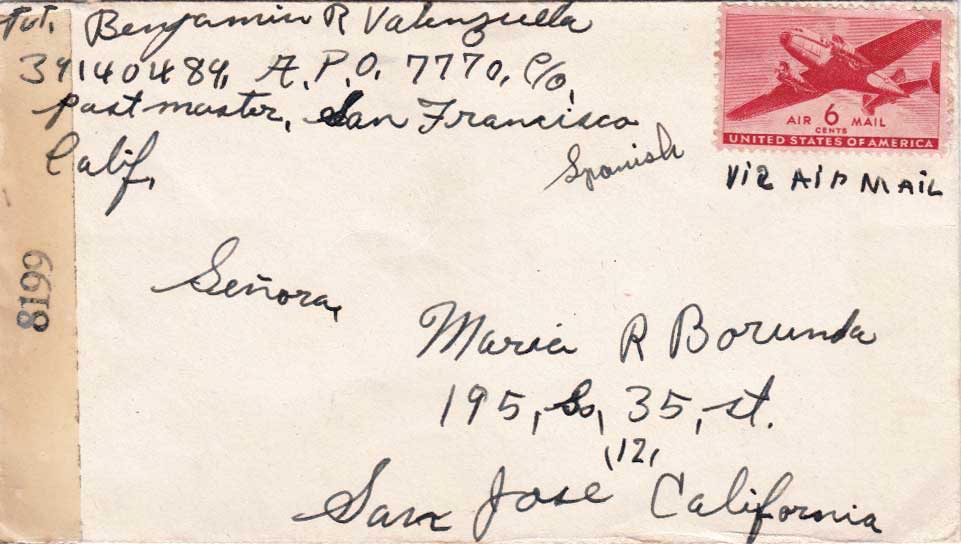 Pvt. Benjamin R Valenzuella
39140484, A.P.O. 7770, C/o,
Postmaster, San Francisco
Calif,
AIR 6 MAIL
CENTS
UNITED STATES OF AMERICA
Spanish
Via AiR MAiL
8199
Señora,
Maria R Borunda
195, So, 35, st.
San Jose ,12, California